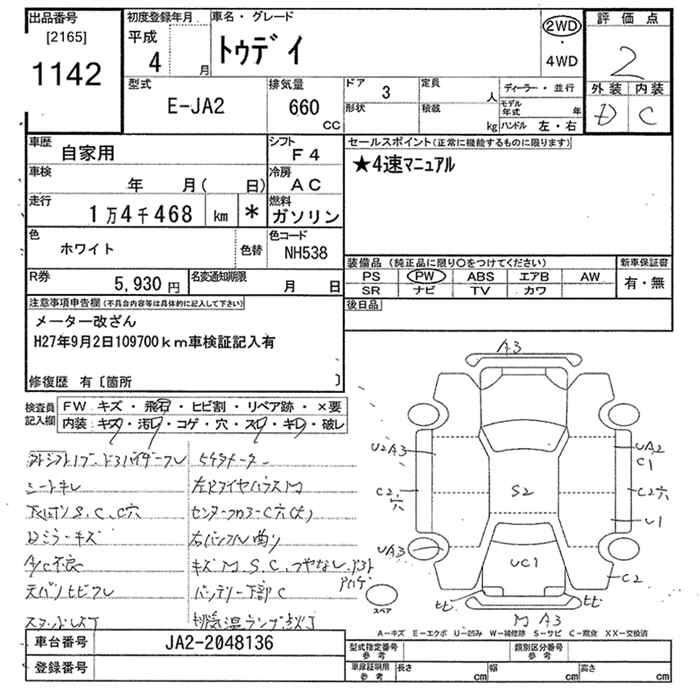 出品番号
[2165]
1142
初度登録年月
平成
4 月
車名・グレード
トゥデイ
2WD
・
4WD
評価点
2
外装 内装
D C
型式
E-JA2
排気量
660
CC
ドア 3
形状
定員 人
積載 kg
ディーラー・並行
モデル年式 年
ハンドル 左・右
車歴
自家用
シフト
F4
車検
年 月( 日)
冷房
AC
走行
1万4千468 km *
燃料
ガソリン
色
ホワイト
色替
色コード
NH538
R券
5,930 円
名変通知期限
月 日
セールスポイント(正常に機能するものに限ります)
★4速マニュアル
装備品(純正品に限り○をつけてください)
PS PW ABS エアB AW
SR ナビ TV カワ
新車保証書
有・無
後日品
注意事項申告欄(不具合内容等は具体的に記入して下さい)
メーター改ざん
H27年9月2日109700km車検証記入有
修復歴 有〔箇所 〕
検査員記入欄
FW キズ・飛石・ヒビ割・リペア跡・×要
内装・キズ・汚レ・コゲ・穴・スレ・キレ・破レ
シートキレ
左Rタイヤハウス M
下廻りサビ S、C、C穴
センターフロアーC穴(大)
ミラーキズ
右バンパー曲り
A/C不良
キズ M、S、C、つやなし
バッテリー下部C
排気温ランプ点灯
A3
U2A3
UA2
C1
C2穴
S2
C2穴
U1
UA3
UC1
C2
ヒビ
ヒビ
M A3
スペア
A-キズ E-エクボ U-凹み W-補修跡 S-サビ C-腐食 XX-交換済
車台番号
JA2-2048136
登録番号
型式指定番号
参考
類別区分番号
参考
車庫証明用
参考
長さ cm
幅 cm
高さ cm